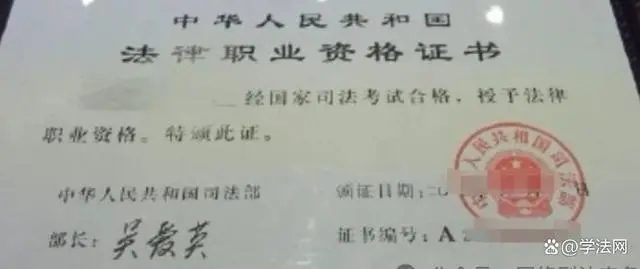 中华人民共和国
法律职业资格证书
经国家司法考试合格，授予法律
职业资格。特颁此证。
中华人民共和国司法部
颁证日期:
部长: 吴爱英
证书编号: A
中华人民共和国司法部
@学法网